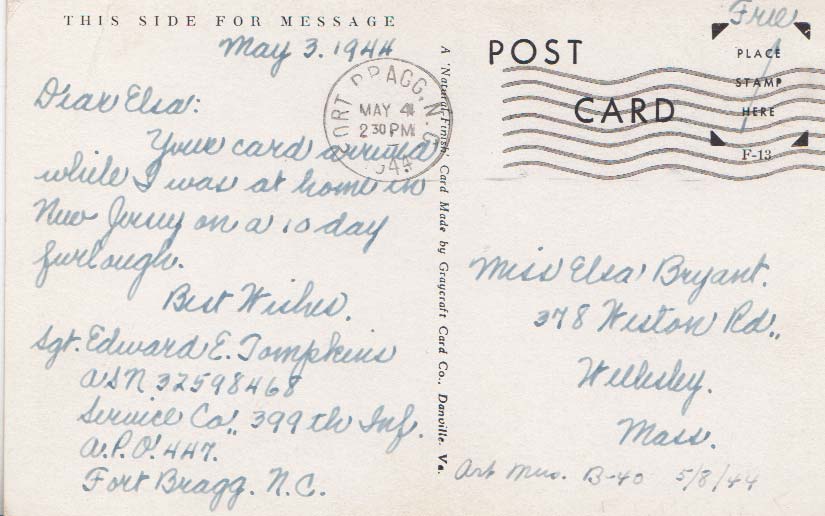 THIS SIDE FOR MESSAGE
May 3. 1944
Dear Elsa:
Your card arrived
while I was at home in
New Jersey on a 10 day
furlough.
Best Wishes.
Sgt. Edward E. Tompkins
ASN 32598468
Service Co., 399th Inf.
A.P.O. 447.
Fort Bragg. N.C.
FORT BRAGG, N.C.
MAY 4
2 30 PM
1944
A 'Natural Finish' Card Made by Graycraft Card Co., Danville, Va.
POST
CARD
Free
PLACE
STAMP
HERE
F-13
Miss Elsa Bryant.
378 Weston Rd.,
Wellesley.
Mass.
Art Mus. B-40 5/8/44